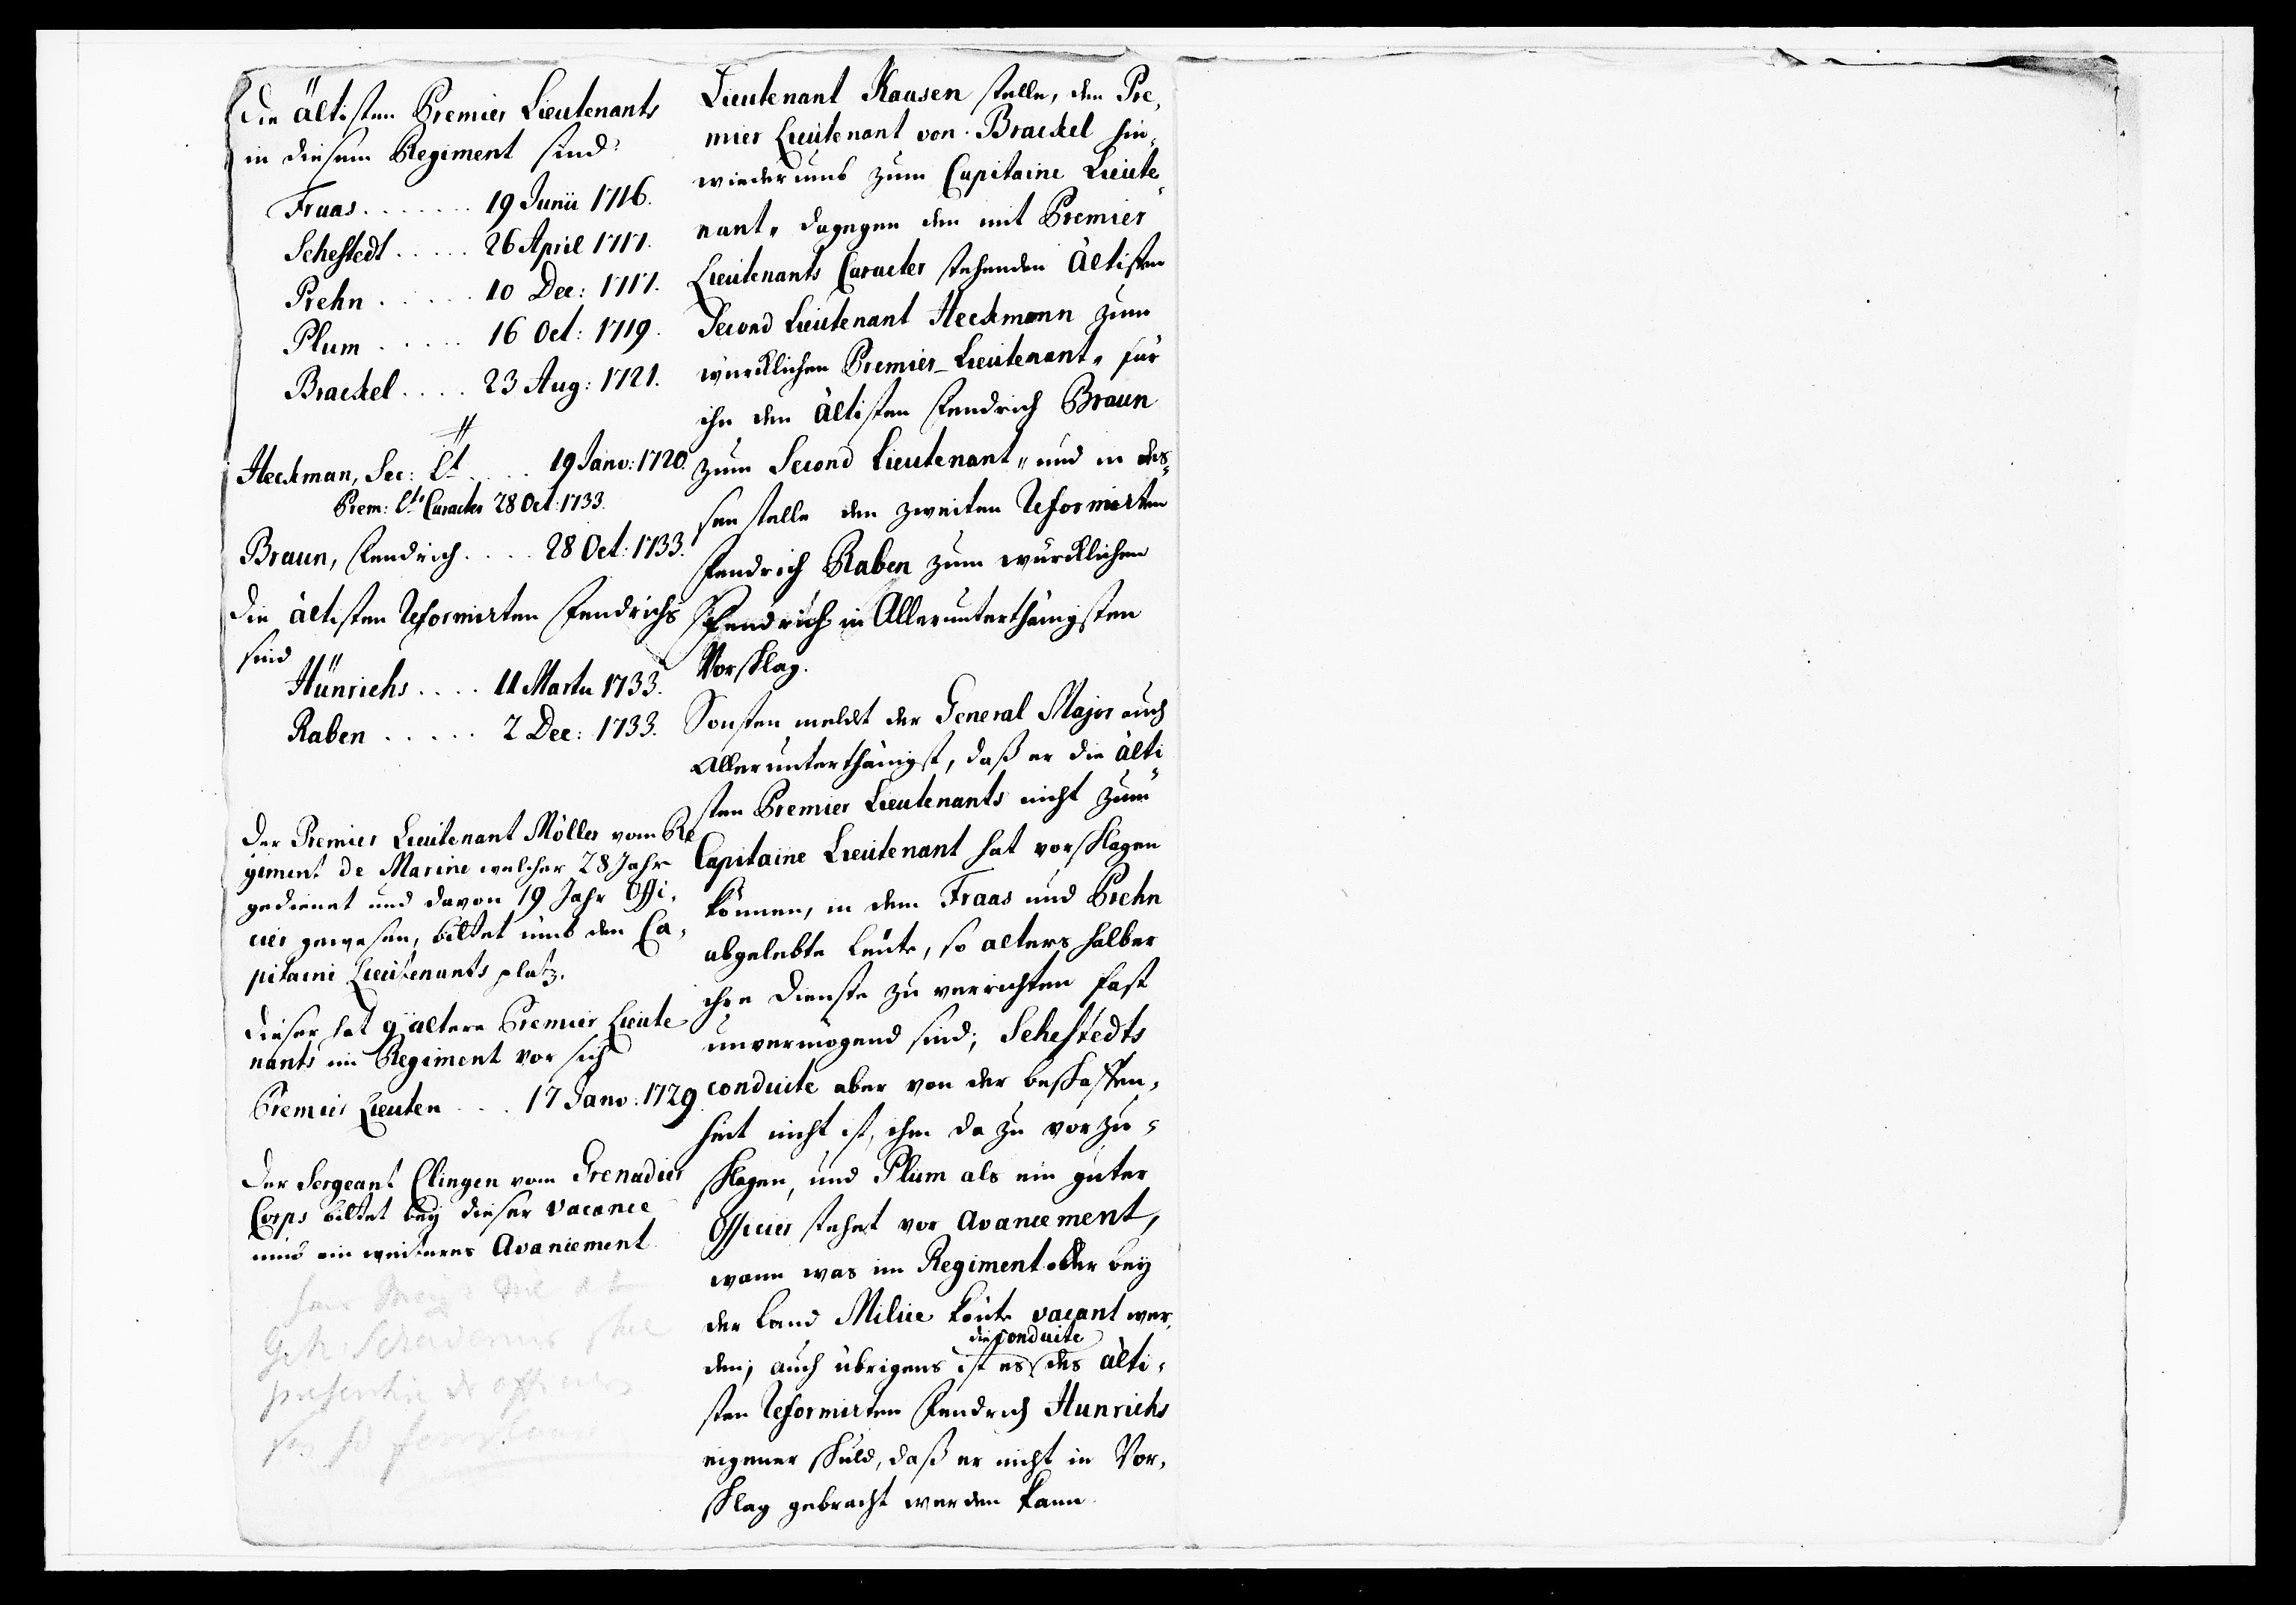 Die ältisten Premier Lieutenants
in diesem Regiment sind
Fraas ....... 19 Junii 1716.
Sehestedt ..... 26 April 1717.
Prehn ..... 10 Dec: 1717.
Plum ..... 16 Oct: 1719.
Brackel .... 23 Aug: 1721.
Heckman, Sec: Lt .... 19 Janv: 1720.
Prem: Lts Caracter 28 Oct: 1733.
Braun, Fendrich .... 28 Oct: 1733.
Die ältisten Reformirten Fendrichs
sind
Hünrichs .... 11 Martii 1733.
Raben ..... 2 Dec: 1733.
Der Premier Lieutenant Möller vom Re
giment de Marine welcher 28 Jahr
gedienet und davon 19 Jahr Offi-
cier gewesen, bittet umb den Ca-
pitaine Lieutenants platz.
Dieser hat 9 ältere Premier Lieute
nants im Regiment vor sich
Premier Lieuten ... 17 Janv: 1729.
Der Sergeant Clingen vom Grenadier
Corps bittet bey dieser vacance
umb ein weiteres Avancement
Lieutenant Kaasen stelle, den Pre-
mier Lieutenant von Brackel hin-
wiederumb zum Capitaine Lieute-
nant, dagegen den mit Premier
Lieutenants Caracter stehenden ältisten
Second Lieutenant Heckmann zum
würcklichen Premier-Lieutenant, für
ihn den ältisten Fendrich Braun
zum Second Lieutenant, und in des-
sen stelle den zweiten Reformirten
Fendrich Raben zum würcklichen
Fendrich in Allerunterthänigsten
Vorschlag.
Sonsten meldet der General Major auch
Allerunterthänigst, daß er die älti-
sten Premier Lieutenants nicht zum
Capitaine Lieutenant hat vorschlagen
können, in dem Fraas und Prehn
abgelebte Leute, so alters halber
ihre Dienste zu verrichten fast
unvermögend sind; Sehestedts
conduite aber von der beschaffen-
heit nicht ist, ihn da zu vorzu-
schlagen, und Plum als ein guter
Officier stehet vor Avancement,
wann was im Regiment oder bey
der Land Milice könte vacant wer-
den; auch übrigens ist es die conduite des älti-
sten Reformirten Fendrich Hunrichs
eigener schuld, daß er nicht in Vor-
schlag gebracht werden kann.